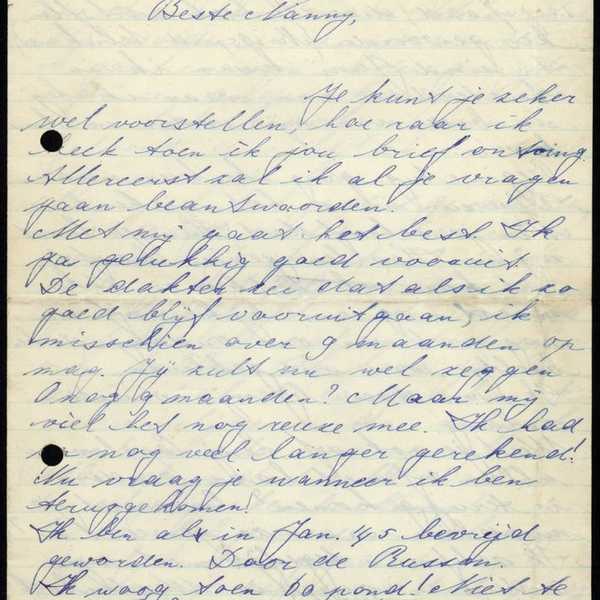 Beste Nanny,
Je kunt je zeker
wel voorstellen, hoe raar ik
keek toen ik jou brief ontving.
Allereerst zal ik al je vragen
gaan beantwoorden.
Met mij gaat het best. Ik
ga gelukkig goed vooruit.
De dokter zei dat als ik zo
goed blijf vooruitgaan, ik
misschien over 9 maanden op
mag. Jij zult nu wel zeggen
O nog 9 maanden? Maar mij
viel het nog reuze mee. Ik had
nog veel langer gerekend!
Nu vraag je wanneer ik ben
teruggekomen!
Ik ben als in Jan. '45 bevrijd
geworden. Door de Russen.
Ik woog toen 60 pond! Niet te